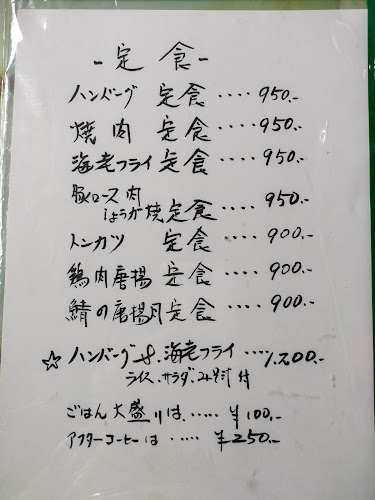 - 定 食 -
ハンバーグ 定食 ‥‥ 950.-
焼肉 定食 ‥‥ 950.-
海老フライ 定食 ‥‥ 950.-
豚ロース肉
しょうが焼定食 ‥‥ 950.-
トンカツ 定食 ‥‥ 900.-
鶏肉唐揚 定食 ‥‥ 900.-
鯖の唐揚定食 ‥‥ 900.-
☆ ハンバーグ &. 海老フライ ‥‥ 1.200.-
ライス.サラダ.みそ汁 付
ごはん大盛りは‥‥‥ ¥100.-
アフターコーヒーは ‥‥‥ ¥250.-